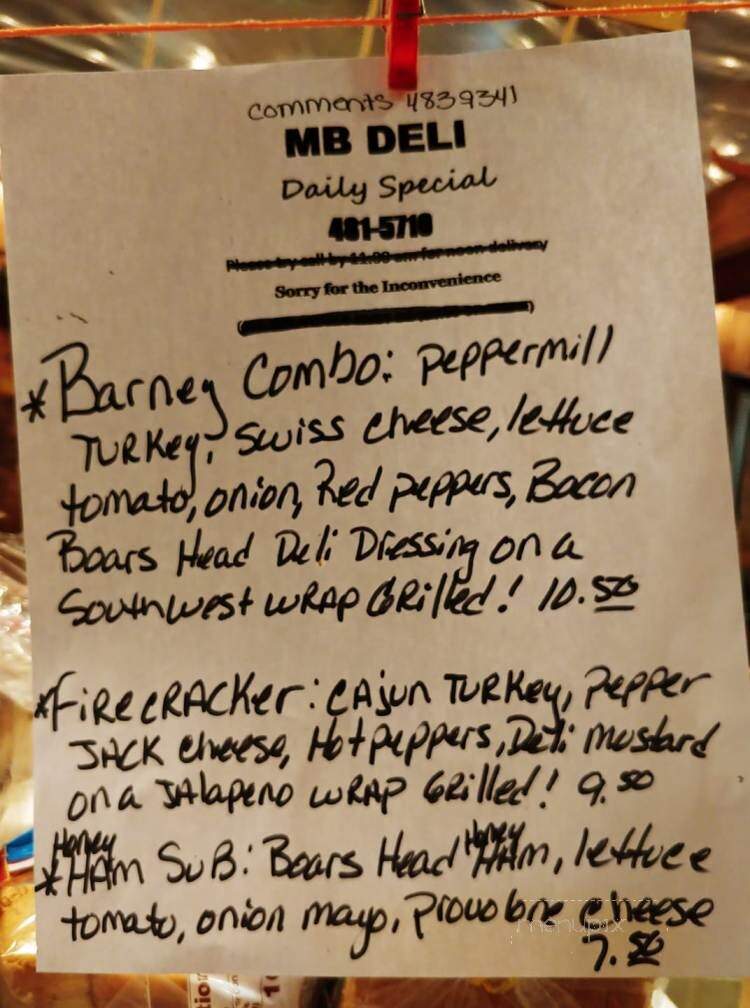 comments 4839341
MB DELI
Daily Special
481-5710
Please try call by 11:00 am for noon delivery
Sorry for the Inconvenience
*Barney Combo: Peppermill
TURKey, Swiss cheese, lettuce
tomato, onion, Red peppers, Bacon
Boars Head Deli Dressing on a
Southwest WRAP GRilled! 10.50
*FiReCRACKeR: CAjun TURKey, Pepper
JACK cheese, Hot peppers, Deli Mustard
on a JAlapeno WRAP GRilled! 9.50
*Honey HAm SuB: Boars Head Honey HAm, lettuce
tomato, onion mayo, Provolone cheese
7.50
menupix